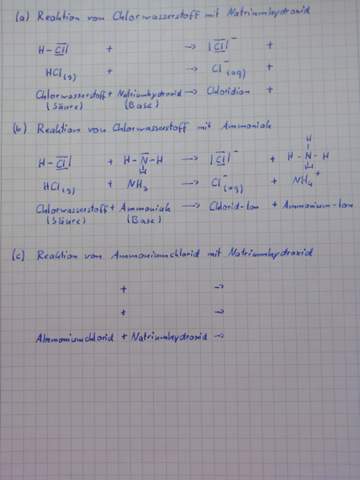 (a) Reaktion von Chlorwasserstoff mit Natriumhydroxid
H-Cl| + → |Cl|⁻ +
HCl(g) + → Cl⁻(aq) +
Chlorwasserstoff + Natriumhydroxid → Chloridion +
(Säure) (Base)
(b) Reaktion von Chlorwasserstoff mit Ammoniak
H
|
H-Cl| + H-N-H → |Cl|⁻ + H-N-H
H H
HCl(g) + NH₃ → Cl⁻(aq) + NH₄⁺
Chlorwasserstoff + Ammoniak → Chlorid-Ion + Ammonium-Ion
(Säure) (Base)
(c) Reaktion von Ammoniumchlorid mit Natriumhydroxid
+ →
+ →
Ammoniumchlorid + Natriumhydroxid →